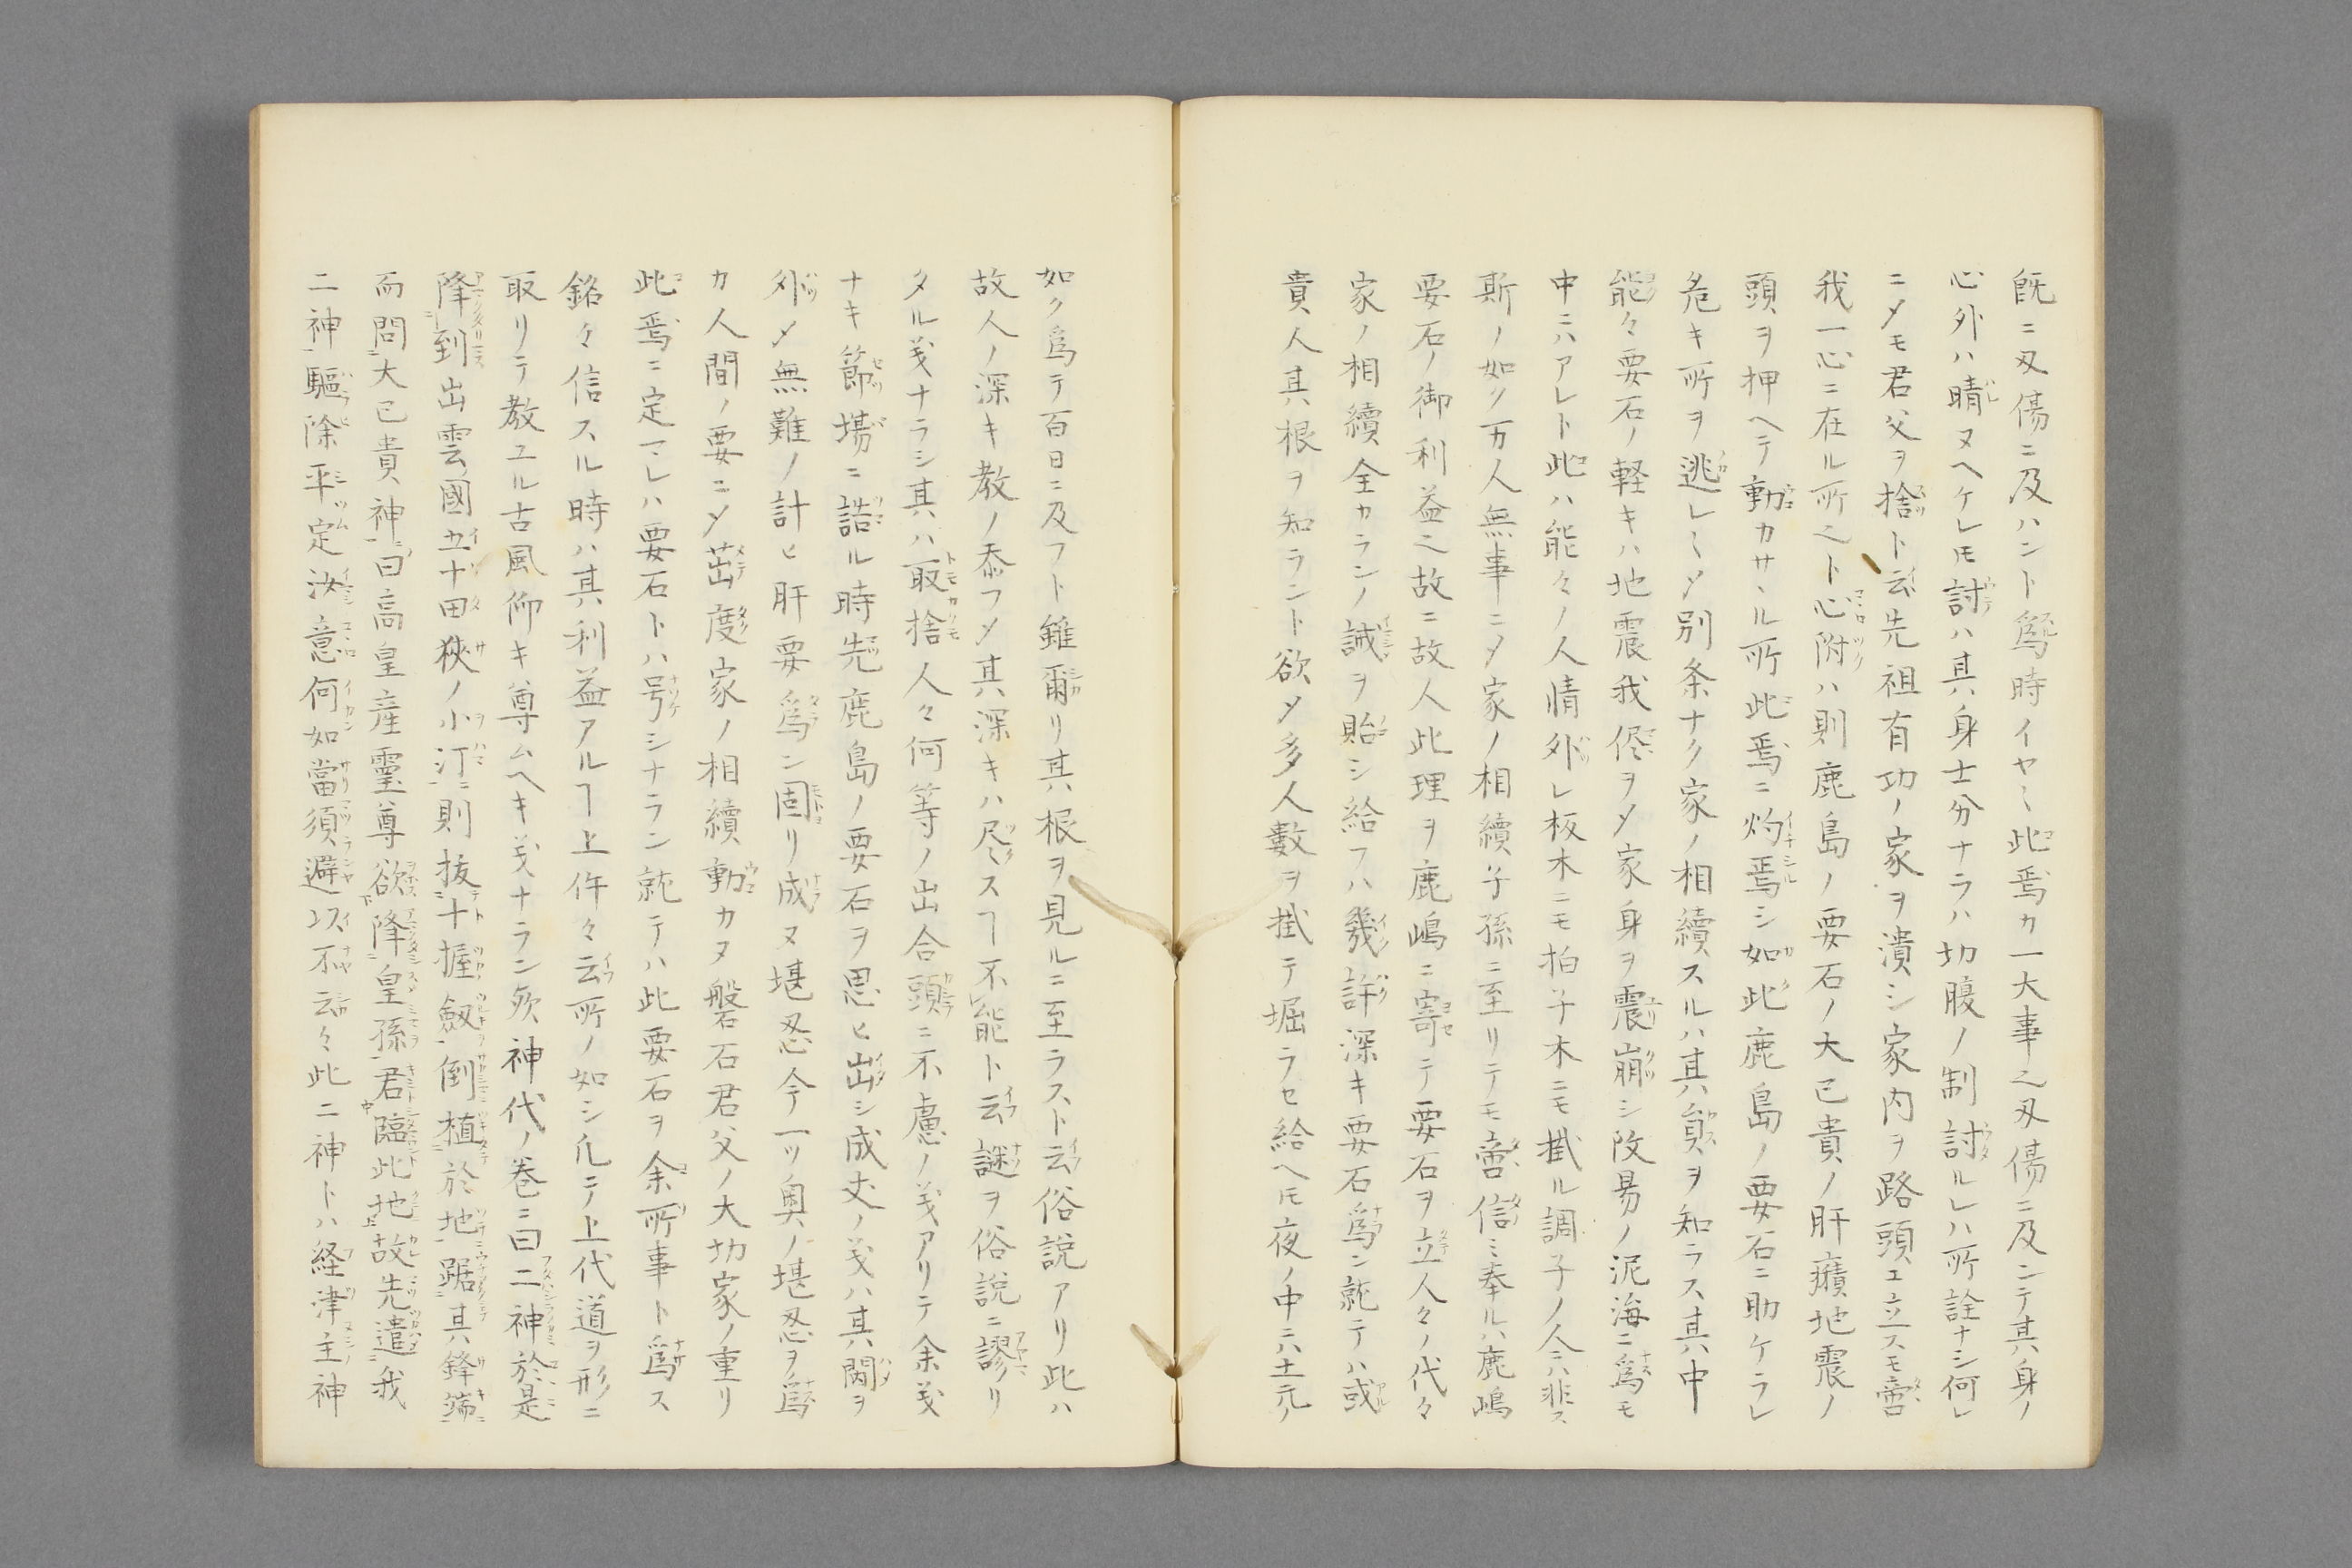 既ニ刄傷ニ及ハント爲時イヤ〱此焉カ一大事之刄傷ニ及ンテ其身ノ
心外ハ晴ヌヘケレ𪜈討ハ其身士分ナラハ切腹ノ制討ルレハ所詮ナシ何レ
ニ〆モ君父ヲ捨ト云先祖有功ノ家ヲ潰シ家内ヲ路頭エ立スモ啻
我一心ニ在ル所之ト心附ハ則鹿島ノ要石ノ大己貴ノ肝癪地震ノ
頭ヲ押ヘテ動カサヽル所此焉ニ灼焉シ如此鹿島ノ要石ニ助ケラレ
危キ所ヲ逃レ〱〆別条ナク家ノ相續スルハ其貟ヲ知ラス其中
能々要石ノ軽キハ地震我侭ヲ〆家身ヲ震崩シ改易ノ泥海ニ爲モ
中ニハアレト此ハ能々ノ人情外レ板木ニモ拍子木ニモ掛ル調子ノ人ニハ非ス
斯ノ如ク万人無事ニ〆家ノ相續子孫ニ至リテモ啻信ミ奉ルハ鹿嶋
要石ノ御利益之故ニ故人此理ヲ鹿嶋ニ寄テ要石ヲ立人々ノ代々
家ノ相續全カランノ誡ヲ貽シ給フハ幾許深キ要石爲ン就テハ或
貴人其根ヲ知ラント欲〆多人數ヲ掛テ堀ラセ給ヘ𪜈夜ノ中ニハ土元ノ
如ク爲テ百日ニ及フト雖爾リ其根ヲ見ルニ至ラスト云俗説アリ此ハ
故人ノ深キ教ノ忝フ〆其深キハ尽スヿ不能ト云謎ヲ俗説ニ謬リ
タル義ナラシ其ハ取捨人々何等ノ出合頭ニ不慮ノ義アリテ余義
ナキ節塲ニ誥ル時先鹿島ノ要石ヲ思ヒ出シ成丈ノ義ハ其関ヲ
外〆無難ノ計ヒ肝要爲ン固リ成ヌ堪忍今一ッ奥ノ堪忍ヲ爲
カ人間ノ要ニ〆茁度家ノ相續動カヌ磐石君父ノ大切家ノ重リ
此焉ニ定マレハ要石トハ号シナラン就テハ此要石ヲ余所事ト爲ス
銘々信スル時ハ其利益アルヿ上件々云所ノ如シ凡テ上代道ヲ形ニ
取リテ教ユル古風仰キ尊ムヘキ義ナラン歟神代ノ巻ニ曰二神於是
降到出雲國五十田狹ノ小汀ニ則抜十握劔倒植於地踞其鋒端
而問大己貴神曰高皇産靈尊欲降皇孫君臨此地故先遣我
二神驅除平定汝意何如當須避以不云々此ニ神トハ経津主神